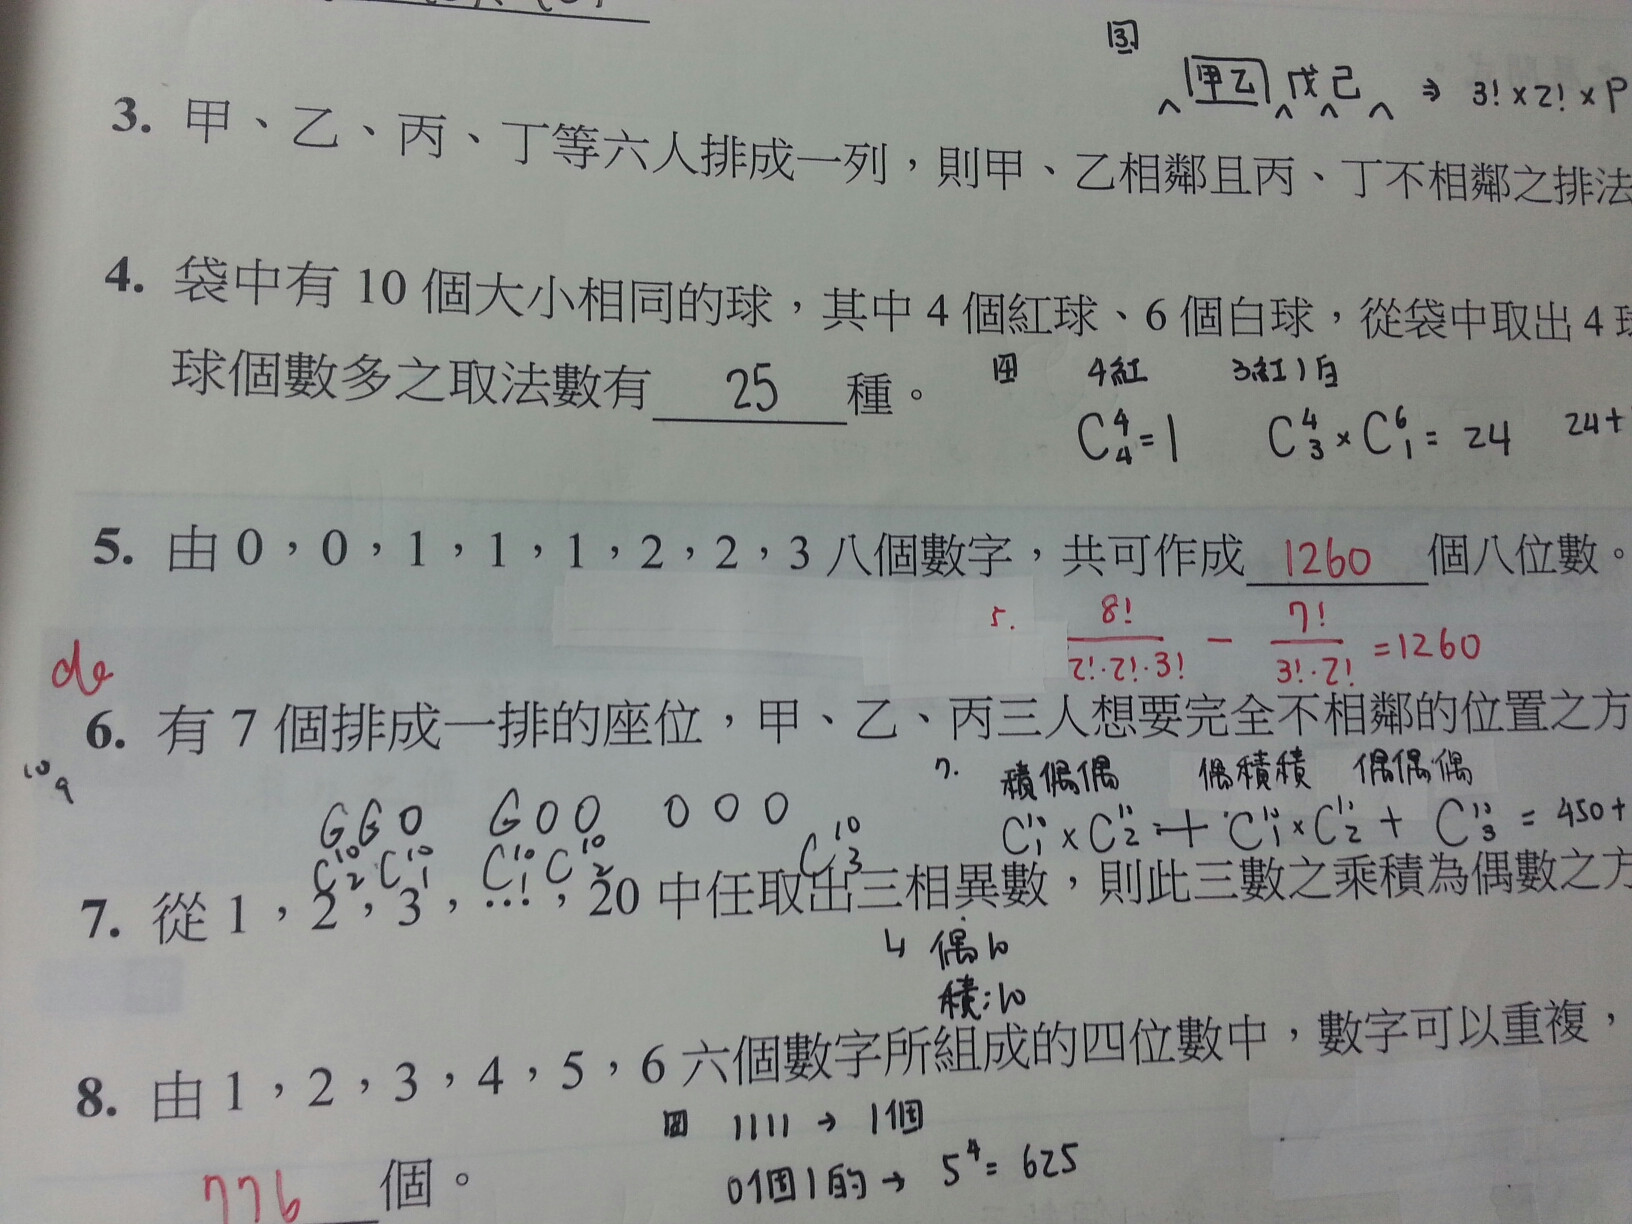 3.
甲乙 戊己 ⇒ 3! × 2! × P
3. 甲、乙、丙、丁等六人排成一列，則甲、乙相鄰且丙、丁不相鄰之排法
4. 袋中有 10 個大小相同的球，其中 4 個紅球、6 個白球，從袋中取出 4
球個數多之取法數有 25 種。
4. 4紅 3紅1白
C⁴₄ = 1 C⁴₃ × C⁶₁ = 24 24+
5. 由 0，0，1，1，1，2，2，3 八個數字，共可作成 1260 個八位數。
5. 8!/(2!·2!·3!) − 7!/(3!·2!) = 1260
6. 有 7 個排成一排的座位，甲、乙、丙三人想要完全不相鄰的位置之方
10
9
7. 積偶偶 偶積積 偶偶偶
G G O G O O O O O
C¹⁰₁ × C¹⁰₂ + C¹⁰₁ × C¹⁰₂ + C¹⁰₃ = 450+
C¹⁰₂ C¹⁰₁ C¹⁰₁ C¹⁰₂ C¹⁰₃
7. 從 1，2，3，…，20 中任取出三相異數，則此三數之乘積為偶數之方
偶10
積:10
8. 由 1，2，3，4，5，6 六個數字所組成的四位數中，數字可以重複，
1111 → 1個
0個1的 → 5⁴ = 625
776 個。